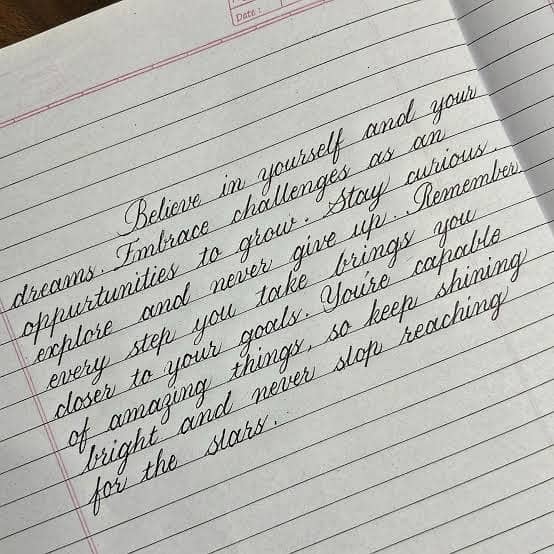 Date :
Believe in yourself and your
dreams. Embrace challenges as an
oppurtunities to grow. Stay curious.
explore and never give up. Remember
every step you take brings you
closer to your goals. You're capable
of amazing things, so keep shining
bright and never stop reaching
for the stars.